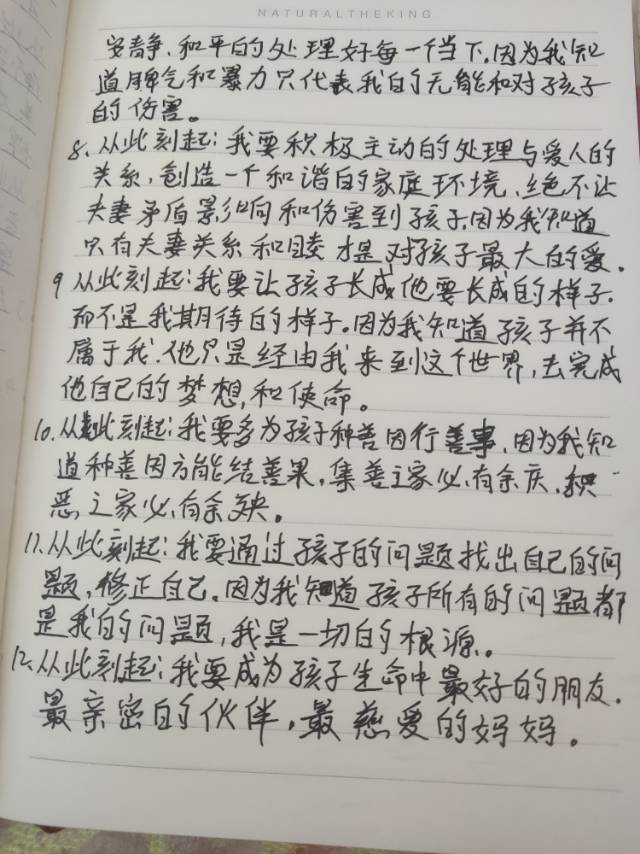 NATURALTHEKING
安静、和平的处理好每一个当下。因为我知
道脾气和暴力只代表我的无能和对孩子
的伤害。
8、从此刻起:我要积极主动的处理与爱人的
关系,创造一个和谐的家庭环境、绝不让
夫妻矛盾影响和伤害到孩子。因为我知道
只有夫妻关系和睦才是对孩子最大的爱。
9 从此刻起:我要让孩子长成他要长成的样子.
而不是我期待的样子。因为我知道孩子并不
属于我.他只是经由我来到这个世界,去完成
他自己的梦想,和使命。
10、从此刻起:我要多为孩子种善因行善事、因为我知
道种善因方能结善果,集善之家必有余庆、积
恶之家必有余殃。
11、从此刻起:我要通过孩子的问题找出自己的问
题,修正自己。因为我知道孩子所有的问题都
是我的问题,我是一切的根源。
12、从此刻起:我要成为孩子生命中最好的朋友.
最亲密的伙伴,最慈爱的妈妈。